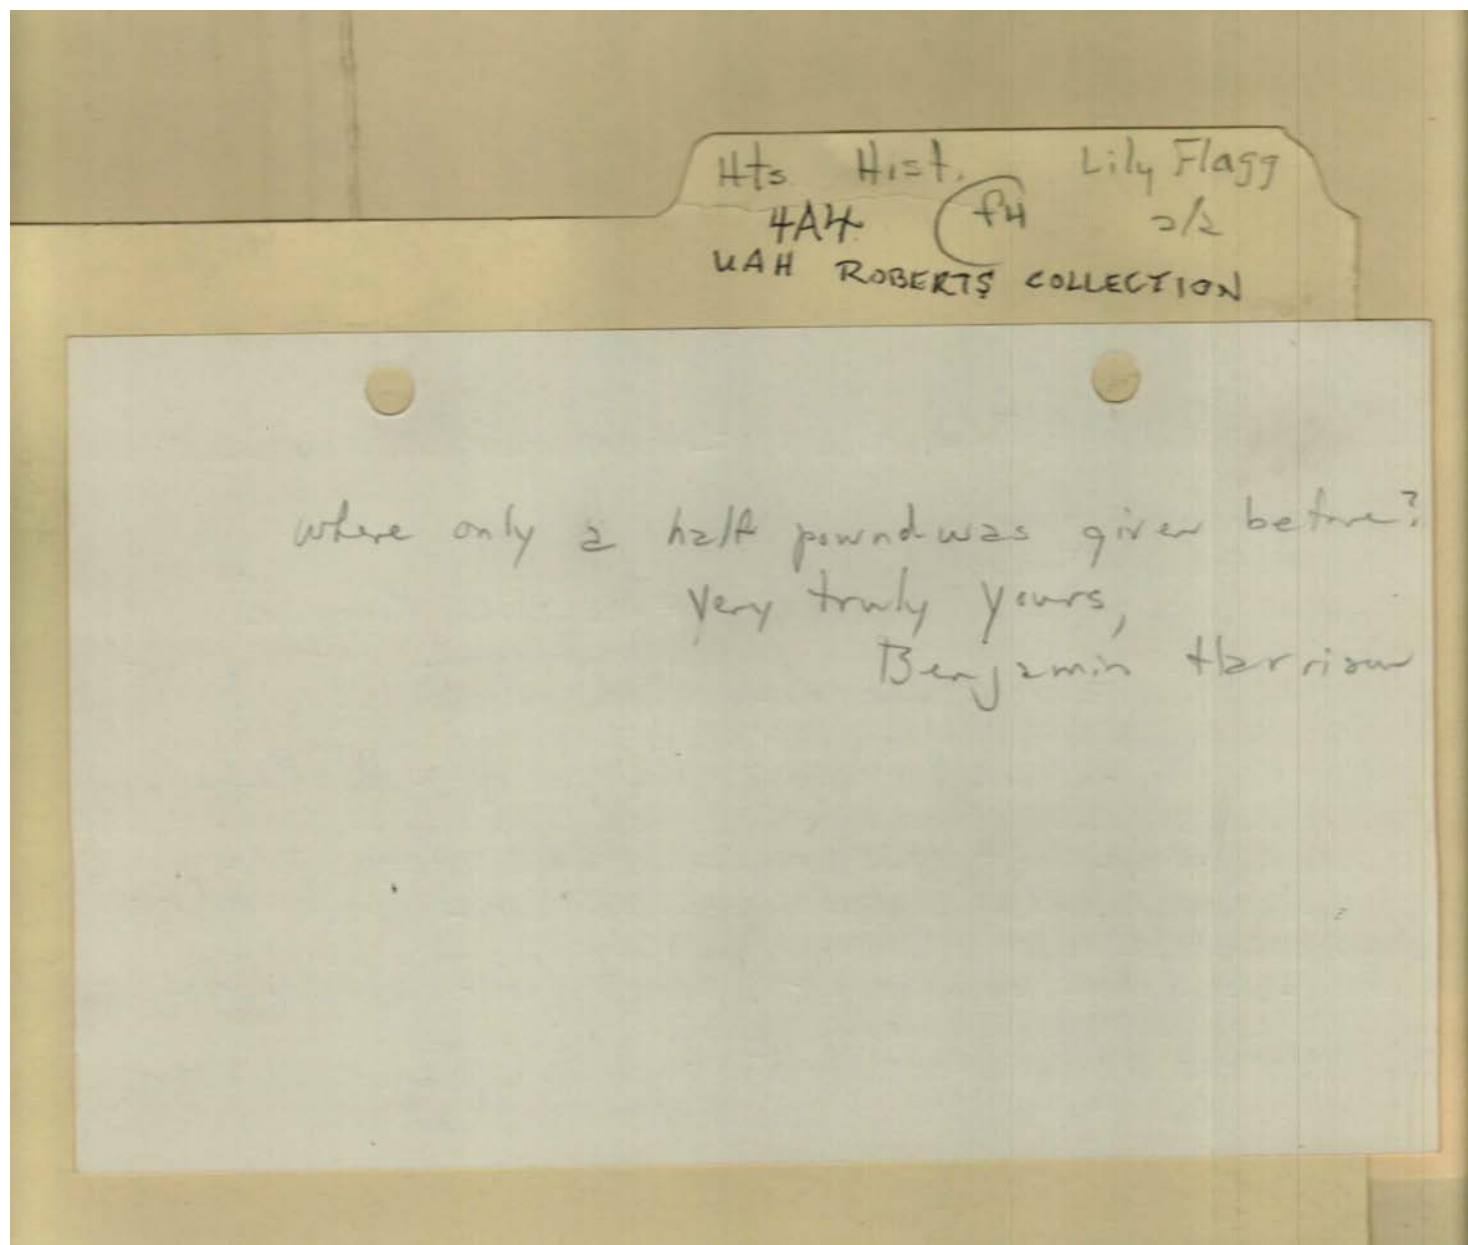 Hts Hist. Lily Flagg
4A4 f4 2/2
UAH ROBERTS COLLECTION
where only a half pound was given before?
Very truly yours,
Benjamin Harrison